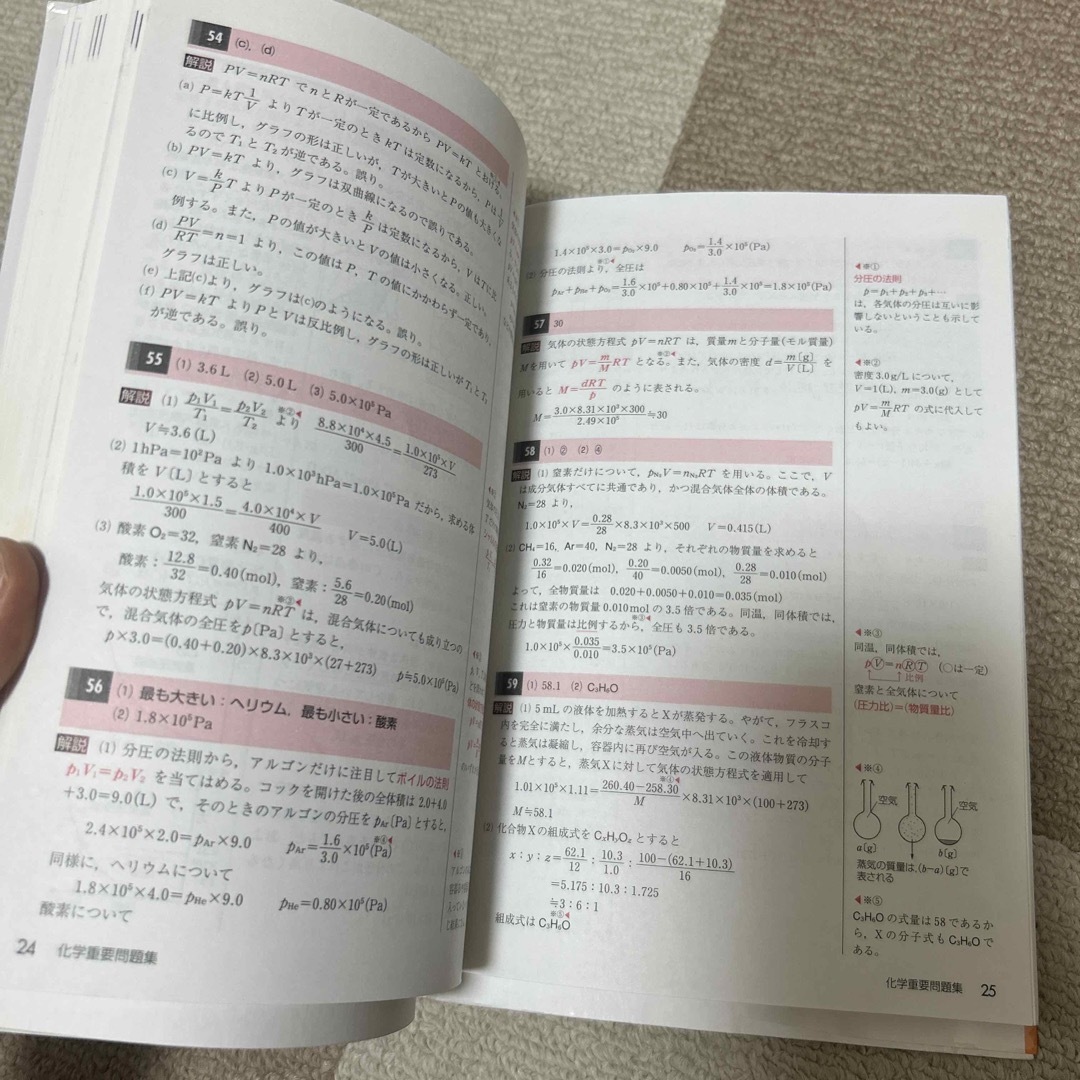 54 (c), (d)
解説 PV=nRT でnとRが一定であるから PV=kT とおける。
(a) P=kT 1/V よりTが一定のときkTは定数になるから，Pは 1/V
に比例し，グラフの形は正しいが，Tが大きいとPの値も大きくな
るので T₁ と T₂ が逆である。誤り。
(b) PV=kT より，グラフは双曲線になるので誤りである。
(c) V=k/P T よりPが一定のとき k/P は定数になるから，VはTに比
例する。また，Pの値が大きいとVの値は小さくなる。正しい。
(d) PV/RT=n=1 より，この値はP，Tの値にかかわらず一定であり，
グラフは正しい。
(e) 上記(c)より，グラフは(c)のようになる。誤り。
(f) PV=kT よりPとVは反比例し，グラフの形は正しいがT₁とT₂
が逆である。誤り。
55 (1) 3.6L (2) 5.0L (3) 5.0×10⁵Pa
解説 (1) p₁V₁/T₁=p₂V₂/T₂ より 8.8×10⁴×4.5/300=1.0×10⁵×V/273
※②
V≒3.6(L)
(2) 1hPa=10²Pa より 1.0×10³hPa=1.0×10⁵Pa だから，求める体
積を V〔L〕とすると
1.0×10⁵×1.5/300=4.0×10⁴×V/400 V=5.0(L)
(3) 酸素 O₂=32，窒素 N₂=28 より，
酸素：12.8/32=0.40(mol)，窒素：5.6/28=0.20(mol)
気体の状態方程式 pV=nRT は，混合気体についても成り立つの
※③
で，混合気体の全圧をp〔Pa〕とすると，
p×3.0=(0.40+0.20)×8.3×10³×(27+273) p≒5.0×10⁵(Pa)
56 (1) 最も大きい：ヘリウム，最も小さい：酸素
(2) 1.8×10⁵Pa
解説 (1) 分圧の法則から，アルゴンだけに注目してボイルの法則
p₁V₁=p₂V₂ を当てはめる。コックを開けた後の全体積は 2.0+4.0
+3.0=9.0(L) で，そのときのアルゴンの分圧を pAr〔Pa〕とすると，
2.4×10⁵×2.0=pAr×9.0 pAr=1.6/3.0×10⁵(Pa)
※④
同様に，ヘリウムについて
1.8×10⁵×4.0=pHe×9.0 pHe=0.80×10⁵(Pa)
酸素について
24 化学重要問題集
1.4×10⁵×3.0=pO₂×9.0 pO₂=1.4/3.0×10⁵(Pa)
※①
(2) 分圧の法則より，全圧は
pAr+pHe+pO₂=1.6/3.0×10⁵+0.80×10⁵+1.4/3.0×10⁵=1.8×10⁵(Pa)
57 30
解説 気体の状態方程式 pV=nRT は，質量mと分子量(モル質量)
Mを用いて pV=m/M RT となる。また，気体の密度 d=m〔g〕/V〔L〕 を
※②
用いると M=dRT/p のように表される。
M=3.0×8.31×10³×300/2.49×10⁵≒30
58 (1) ② (2) ④
解説 (1) 窒素だけについて，pN₂V=nN₂RT を用いる。ここで，V
は成分気体すべてに共通であり，かつ混合気体全体の体積である。
N₂=28 より，
1.0×10⁵×V=0.28/28×8.3×10³×500 V=0.415(L)
(2) CH₄=16，Ar=40，N₂=28 より，それぞれの物質量を求めると
0.32/16=0.020(mol)，0.20/40=0.0050(mol)，0.28/28=0.010(mol)
よって，全物質量は 0.020+0.0050+0.010=0.035(mol)
これは窒素の物質量 0.010mol の 3.5 倍である。同温，同体積では，
※③
圧力と物質量は比例するから，全圧も 3.5 倍である。
1.0×10⁵×0.035/0.010=3.5×10⁵(Pa)
59 (1) 58.1 (2) C₃H₆O
解説 (1) 5mL の液体を加熱するとXが蒸発する。やがて，フラスコ
内を完全に満たし，余分な蒸気は空気中へ出ていく。これを冷却す
ると蒸気は凝縮し，容器内に再び空気が入る。この液体物質の分子
量をMとすると，蒸気Xに対して気体の状態方程式を適用して
※④
1.01×10⁵×1.11=260.40-258.30/M×8.31×10³×(100+273)
M≒58.1
(2) 化合物Xの組成式を CxHyOz とすると
x：y：z=62.1/12：10.3/1.0：100-(62.1+10.3)/16
=5.175：10.3：1.725
≒3：6：1
※⑤
組成式は C₃H₆O
※①
分圧の法則
p=p₁+p₂+p₃+…
は，各気体の分圧は互いに影
響しないということも示して
いる。
※②
密度 3.0g/L について，
V=1(L)，m=3.0(g) として
pV=m/M RT の式に代入して
もよい。
※③
同温，同体積では，
pV=nRT (○は一定)
比例
窒素と全気体について
(圧力比)=(物質量比)
※④
空気
空気
a〔g〕
b〔g〕
蒸気の質量は，(b-a)〔g〕で
表される
※⑤
C₃H₆O の式量は 58 であるか
ら，Xの分子式も C₃H₆O で
ある。
化学重要問題集 25